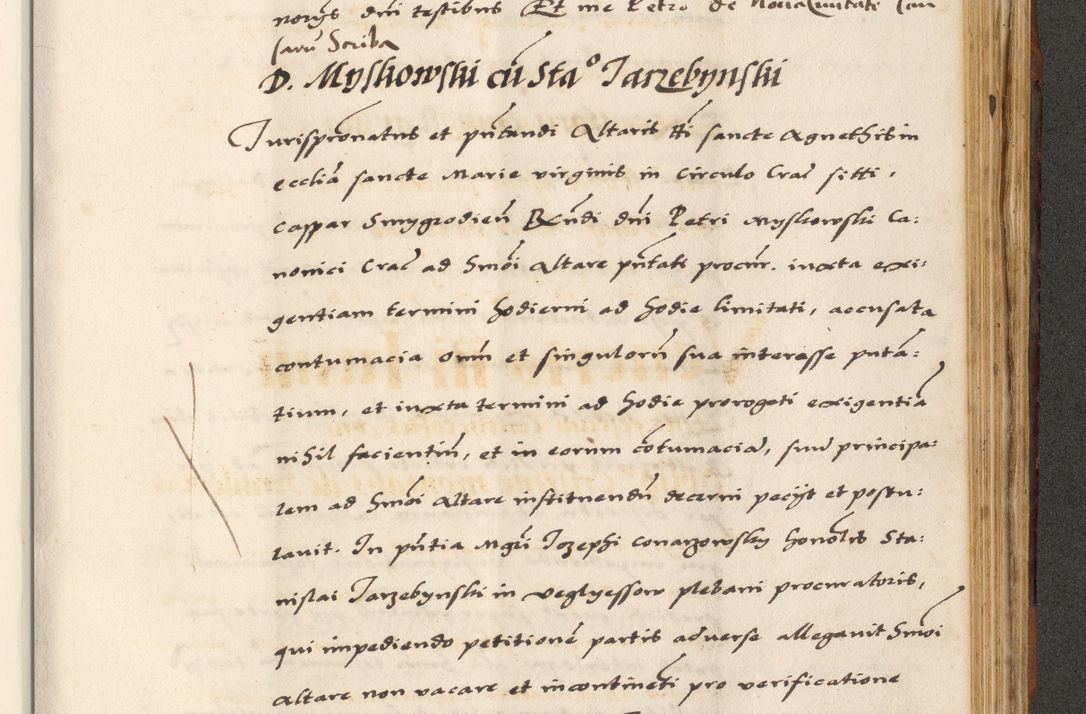 norus dni testibus Et me Petro de Nova Civitate
Scriba
D. Myskowski cu Sta⁰ Jarzebynski
Jurisprōnatus et pn̄tandi Altaris sancte Agnethis in
ecclīa sancte Marie virginis in Circulo Crac̄ sitti,
Caspar Smygrodien̄ Rx̄ndi dn̄i Petri Myskowski Ca:
nonici Crac̄ ad Smōi Altare pn̄tati procur. iuxta exi:
gentiam termini hodierni ad hodie limitati, accusata
contumacia om̄ et singulorū sua interesse putā:
tium, et iuxta termini ad hodie prorogati exigentiā
nihil facientiū, et in eorum cōtumaciā, suū principa:
lem ad Smōi Altare instituendū decerni peciit et postu:
lavit. In pn̄tia Mgrī Jozephi Conarzowsky honōlis Sta:
nislai Jarzebynski in Veglyessow plebani procuratoris,
qui impediendo petitionē partis adverse allegavit Smōi
Altare non vacare et incontinēti pro verificatione